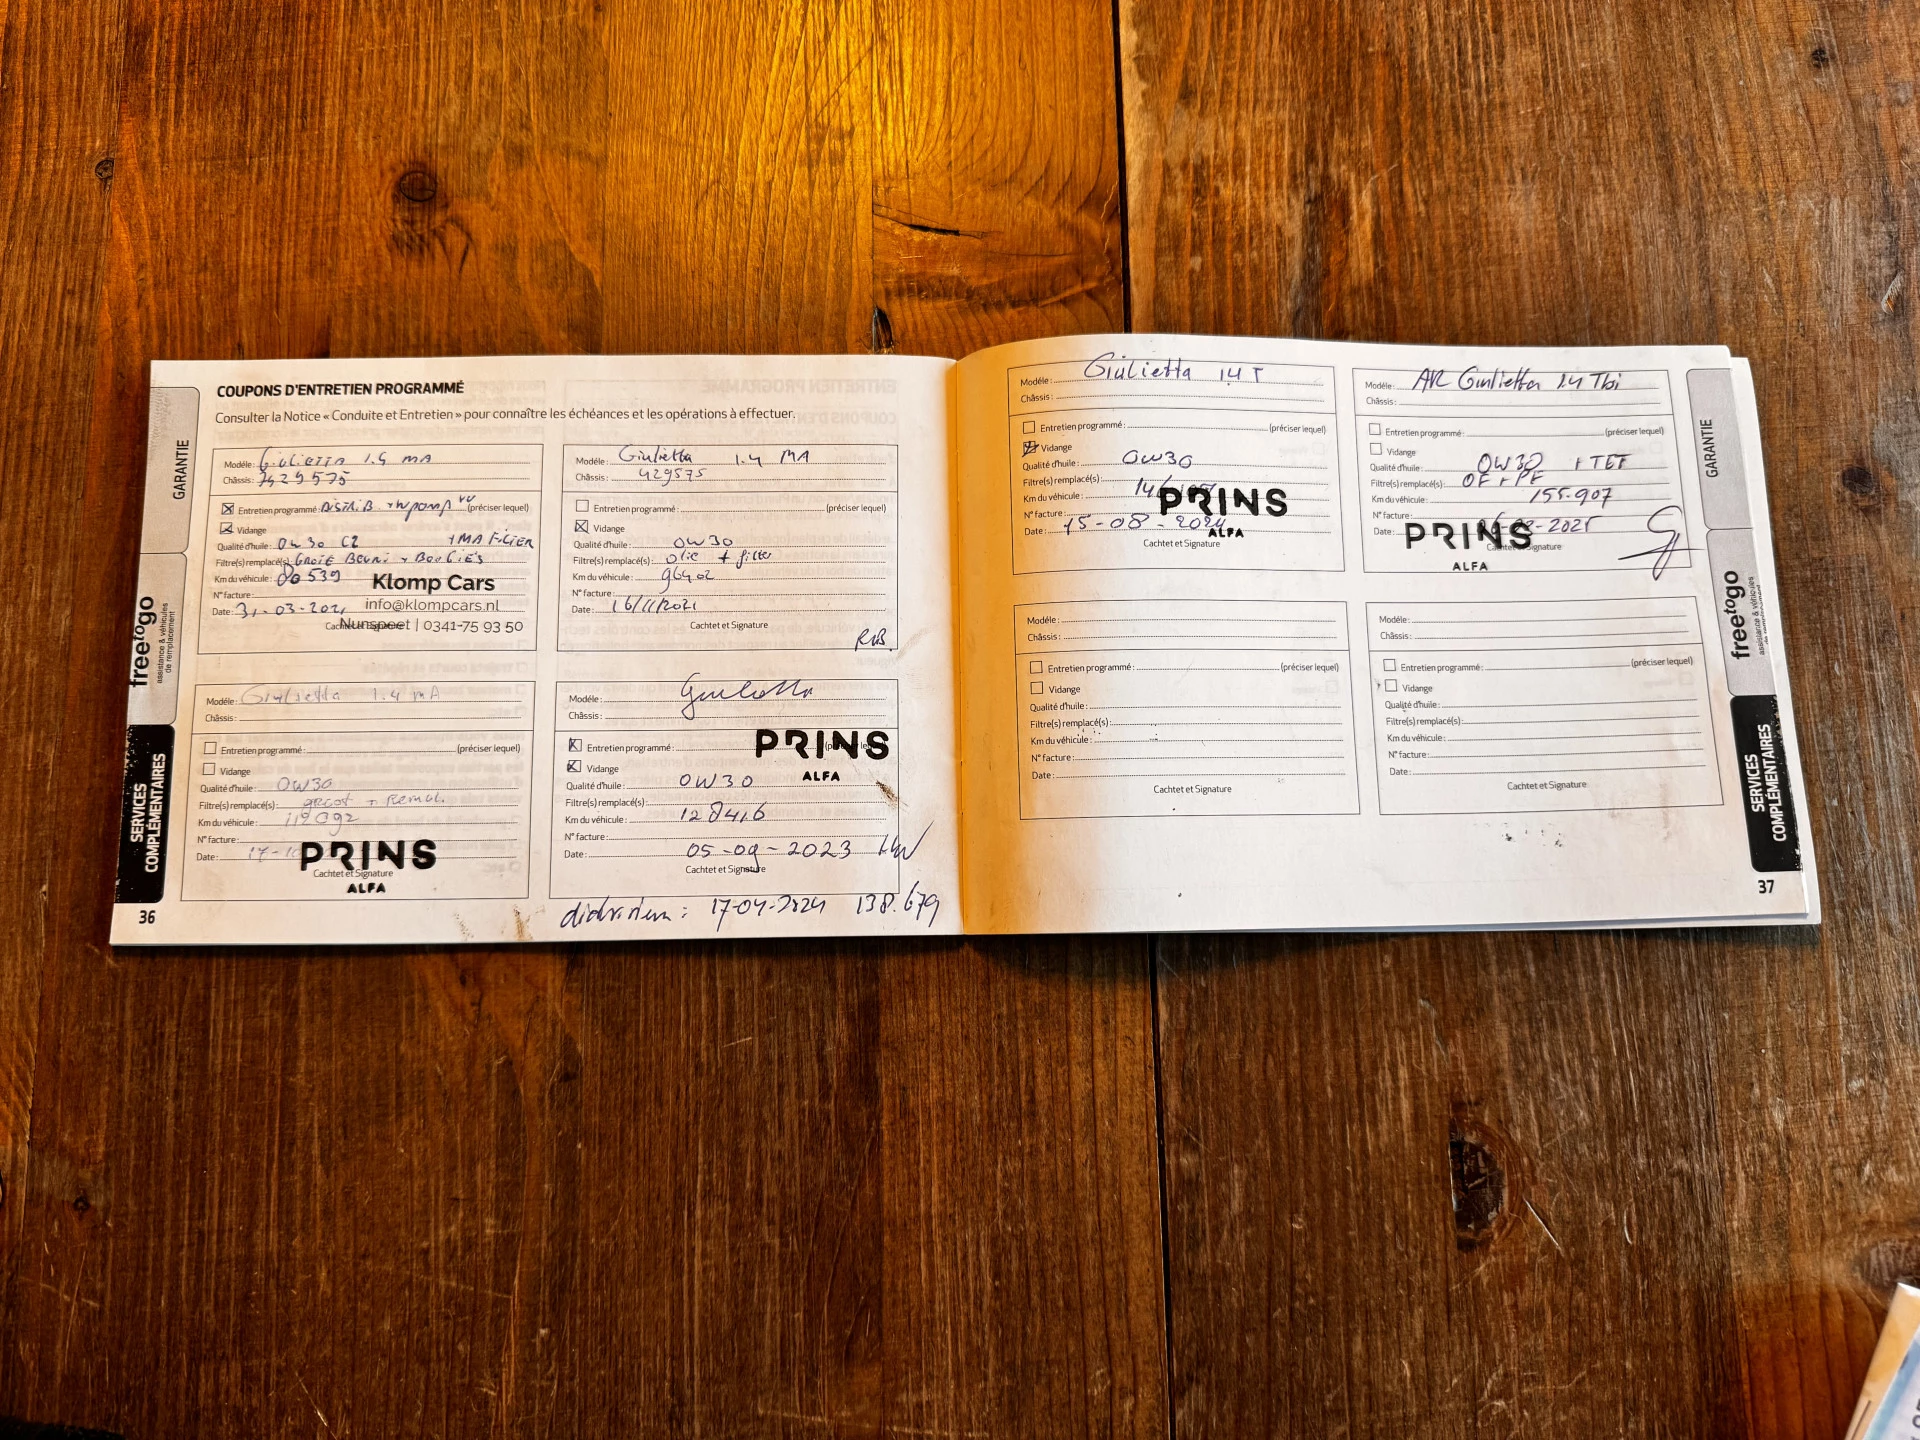 COUPONS D'ENTRETIEN PROGRAMMÉ
Consulter la Notice « Conduite et Entretien » pour connaître les échéances et les opérations à effectuer.
GARANTIE
freetogo
assistance & véhicules
de remplacement
SERVICES
COMPLÉMENTAIRES
36
Modéle: Giulietta 1.4 MA
Châssis: 7429575
Entretien programmé: DISTRIB + wpomp (préciser lequel)
Vidange
Qualité d'huile: 0w30 C2 + MA FiLTER
Filtre(s) remplacé(s): GROTE BEURT + BOUGIES
Km du véhicule: 539
N° facture:
Date: 31-03-2021
Cachtet et Signature
Klomp Cars
info@klompcars.nl
Nunspeet | 0341-75 93 50
Modéle: Giulietta 1.4 MA
Châssis: 429575
Entretien programmé: (préciser lequel)
Vidange
Qualité d'huile: 0w30
Filtre(s) remplacé(s): olie + filter
Km du véhicule: 96402
N° facture:
Date: 16/11/2021
Cachtet et Signature
Modéle: Giulietta 1.4 MA
Châssis:
Entretien programmé: (préciser lequel)
Vidange
Qualité d'huile: 0W30
Filtre(s) remplacé(s): groot +
Km du véhicule: 112092
N° facture:
Date: 17-10
Cachtet et Signature
PRINS
ALFA
Modéle: Giulietta
Châssis:
Entretien programmé:
Vidange
Qualité d'huile: 0W30
Filtre(s) remplacé(s):
Km du véhicule: 128416
N° facture:
Date: 05-09-2023
Cachtet et Signature
PRINS
ALFA
17-04-2024 138.679
Modéle: Giulietta 1.4 T
Châssis:
Entretien programmé: (préciser lequel)
Vidange
Qualité d'huile: 0W30
Filtre(s) remplacé(s):
Km du véhicule:
N° facture:
Date: 15-08-2024
Cachtet et Signature
PRINS
ALFA
Modéle: AR Giulietta 1.4 Tbi
Châssis:
Entretien programmé: (préciser lequel)
Vidange
Qualité d'huile: 0W30
Filtre(s) remplacé(s): OF + PF
Km du véhicule: 155.907
N° facture:
Date: 2025
Cachtet et Signature
PRINS
ALFA
Modéle:
Châssis:
Entretien programmé: (préciser lequel)
Vidange
Qualité d'huile:
Filtre(s) remplacé(s):
Km du véhicule:
N° facture:
Date:
Cachtet et Signature
Modéle:
Châssis:
Entretien programmé: (préciser lequel)
Vidange
Qualité d'huile:
Filtre(s) remplacé(s):
Km du véhicule:
N° facture:
Date:
Cachtet et Signature
GARANTIE
freetogo
assistance & véhicules
de remplacement
SERVICES
COMPLÉMENTAIRES
37